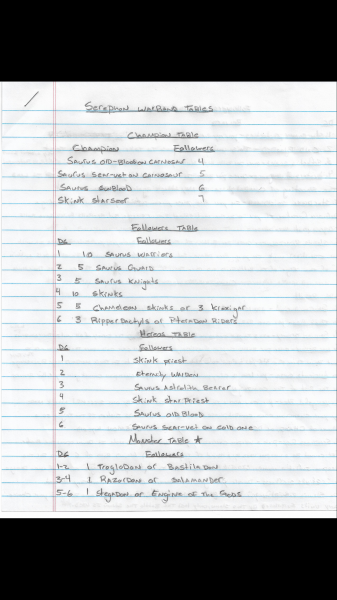 Seraphon Warband Tables
Champion Table
Champion Followers
Saurus Old-Blood on Carnosaur 4
Saurus Scar-vet on Carnosaur 5
Saurus SunBlood 6
Skink Starseer 7
Followers Table
D6 Followers
1 10 Saurus Warriors
2 5 Saurus Guard
3 5 Saurus Knights
4 10 Skinks
5 5 Chameleon Skinks or 3 Kroxigar
6 3 Ripperdactyls or Pteradon Riders
Heroes Table
D6 Followers
1 Skink Priest
2 Eternity Warden
3 Saurus Astrolith Bearer
4 Skink Star Priest
5 Saurus Old Blood
6 Saurus Scar-vet on Cold one
Monster Table ★
D6 Followers
1-2 1 Troglodon or Bastiladon
3-4 1 Razordon or Salamander
5-6 1 Stegadon or Engine of the Gods